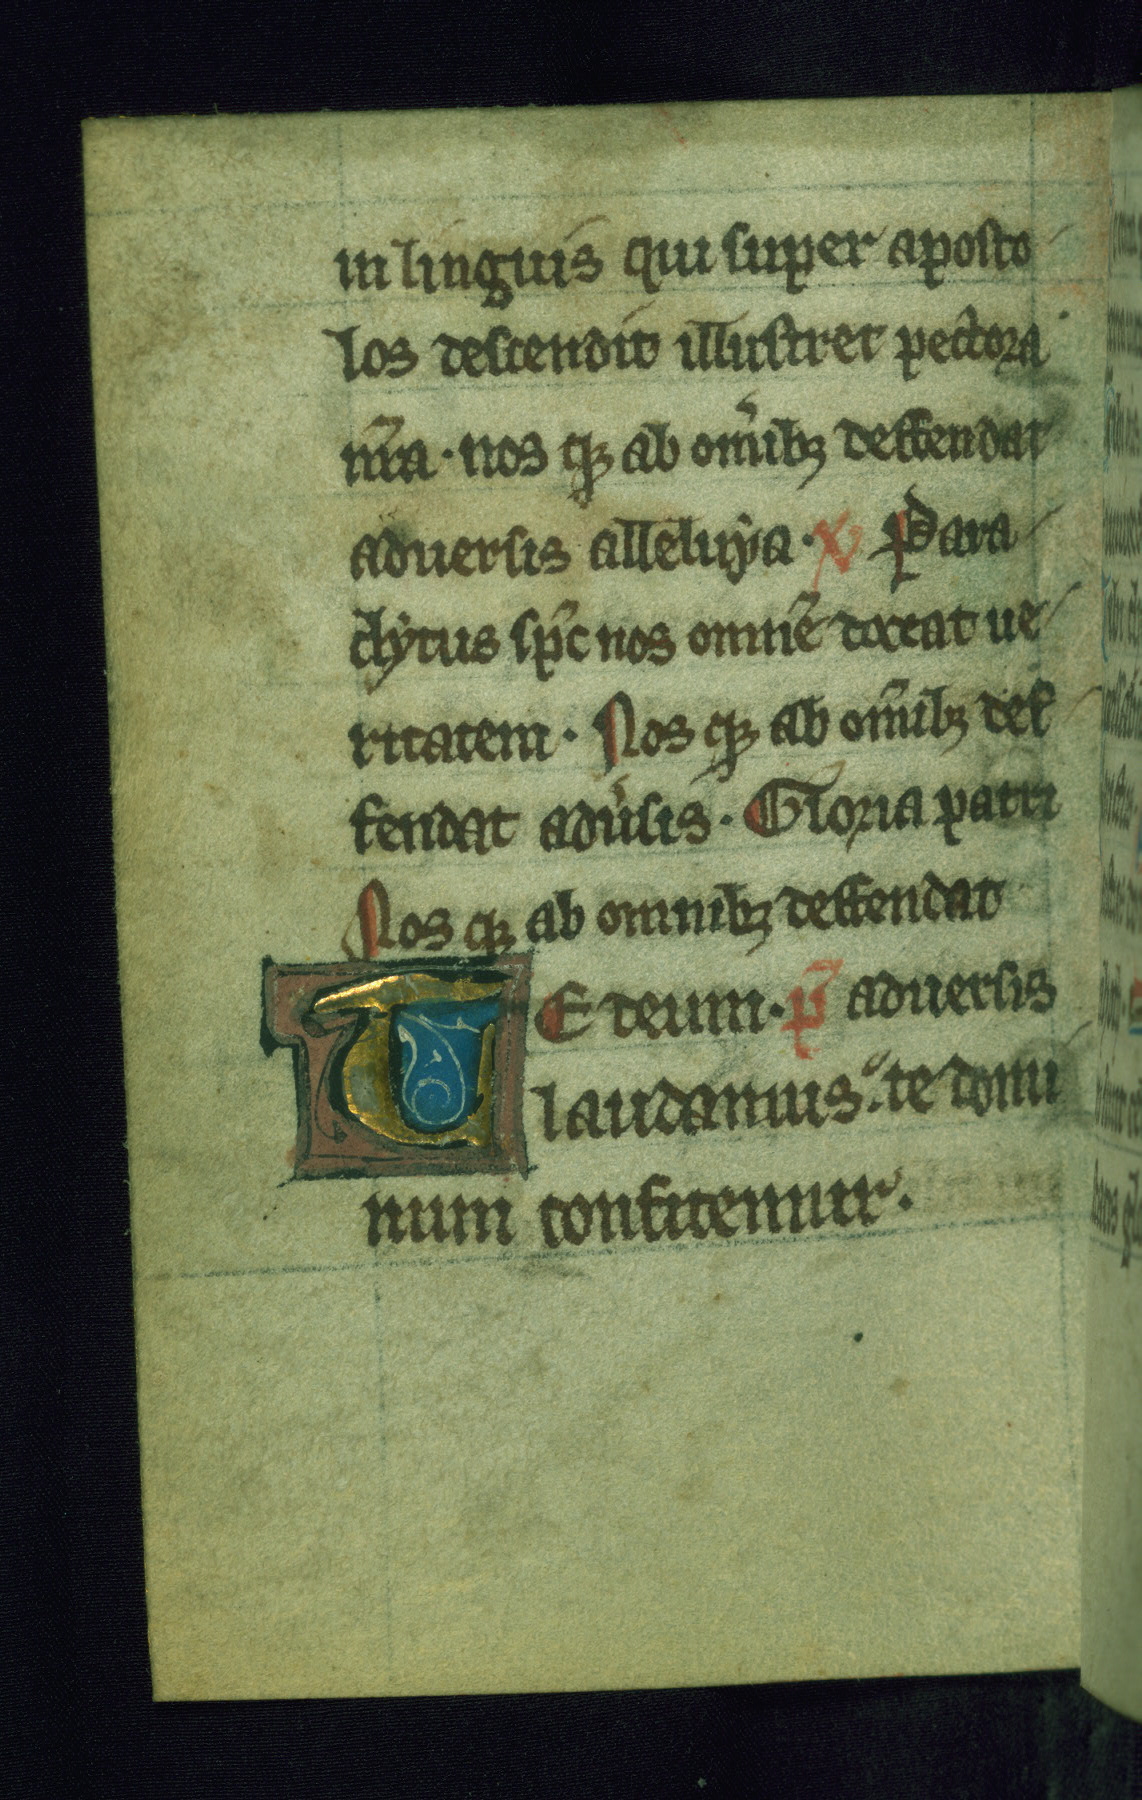 in linguis qui super aposto
los descendit illustret pectora
nr̃a · nos qꝫ ab om̃ibꝫ deffendat
aduersis alleluẏa · ℣ Para
clẏtus sp̃c nos omnẽ doceat ue
ritatem · Nos qꝫ ab om̃ibꝫ def
fendat adũsis · Gloria patri
Nos qꝫ ab omnibꝫ deffendat
TE deum · p̃ aduersis
laudamus : te domi
num confitemur .